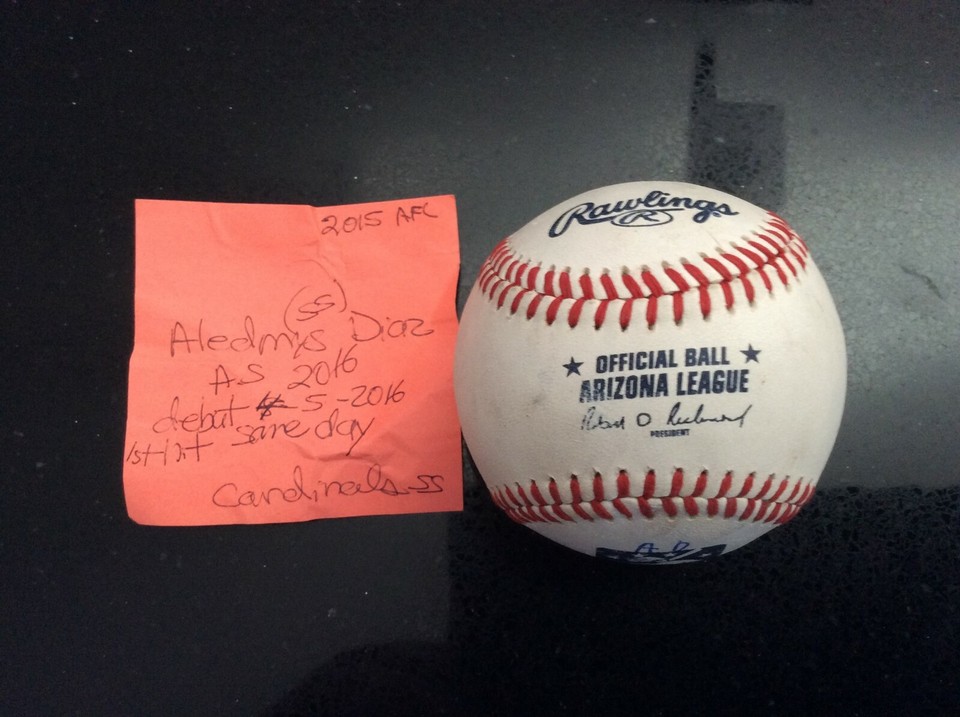 2015 AFL
(SS)
Aledmys Diaz
A.S 2016
debut 5-2016
1st hit same day
Cardinals SS
Rawlings
R
OFFICIAL BALL
ARIZONA LEAGUE
Robert D. Richmond
PRESIDENT